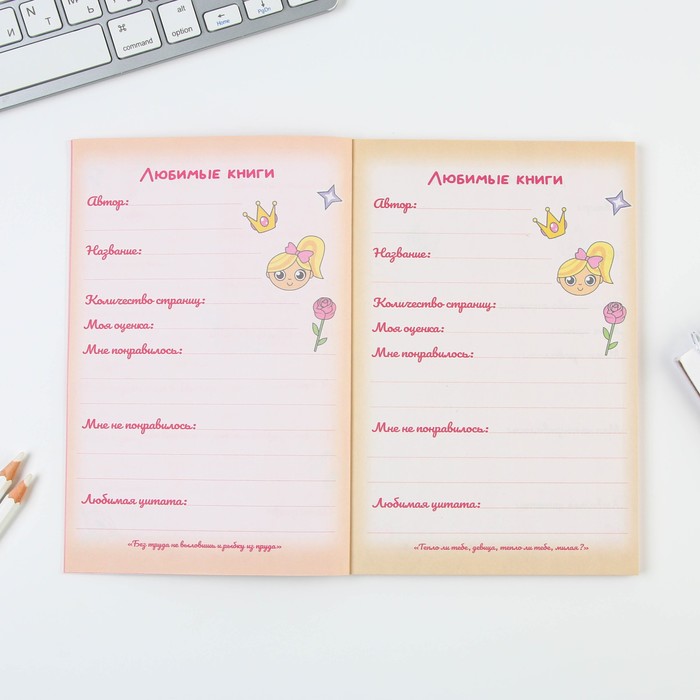 Home
PgDn
⌘
command
alt
option
control
option
Любимые книги
Автор:
Название:
Количество страниц:
Моя оценка:
Мне понравилось:
Мне не понравилось:
Любимая цитата:
«Без труда не выловишь и рыбку из пруда»
Любимые книги
Автор:
Название:
Количество страниц:
Моя оценка:
Мне понравилось:
Мне не понравилось:
Любимая цитата:
«Тепло ли тебе, девица, тепло ли тебе, милая?»